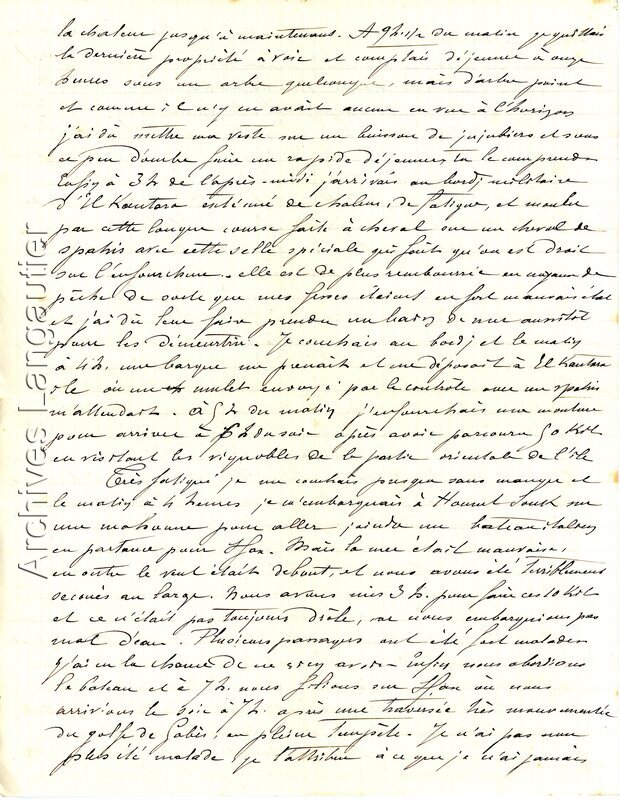 la chaleur jusqu'à maintenant. A 9h 1/2 du matin je quittais
la dernière propriété à voir et comptais déjeuner à onze
heures sous un arbre quelconque, mais d'arbre point
et comme il n'y en avait aucun en vue à l'horizon
j'ai dû mettre ma veste sur un buisson de jujubiers et sous
ce peu d'ombre faire un rapide déjeuner tu le comprends
Enfin à 3h de l'après-midi j'arrivais au bordj militaire
d'El Kantara exténué de chaleur, de fatigue, et moulu
par cette longue course faite à cheval sur un cheval de
spahis avec cette selle spéciale qui fait qu'on est droit
sur l'enfourchure. elle est de plus rembourrée en noyaux de
pêche de sorte que mes fesses étaient en fort mauvais état
et j'ai dû leur faire prendre un bain de mer aussitôt
pour les démeurtrir. Je couchais au bordj et le matin
à 4h. une barque me prenait et me déposait à El Kantara
île où un mulet envoyé par le contrôle avec un spahis
m'attendait. à 5h du matin j'enfourchais une monture
pour arriver à 6h du soir après avoir parcouru 50 Kil
en visitant les vignobles de la partie orientale de l'île
Très fatigué je me couchais presque sans manger et
le matin à 4 heures je m'embarquais à Houmt Souk sur
une mahonne pour aller joindre un bateau italien
en partance pour Sfax. Mais la mer était mauvaise,
en outre le vent était debout, et nous avons été terriblement
secoués au large. Nous avons mis 3h. pour faire ces 10 Kil
et ce n'était pas toujours drôle, car nous embarquions pas
mal d'eau. Plusieurs passagers ont été fort malades
j'ai eu la chance de ne rien avoir. Enfin nous abordions
le bateau et à 7h. nous filions sur Sfax où nous
arrivions le soir à 7h. après une traversée très mouvementée
du golfe de Gabès, en pleine tempête. Je n'ai pas non
plus été malade je l'attribue à ce que je n'ai jamais
Archives Langautier